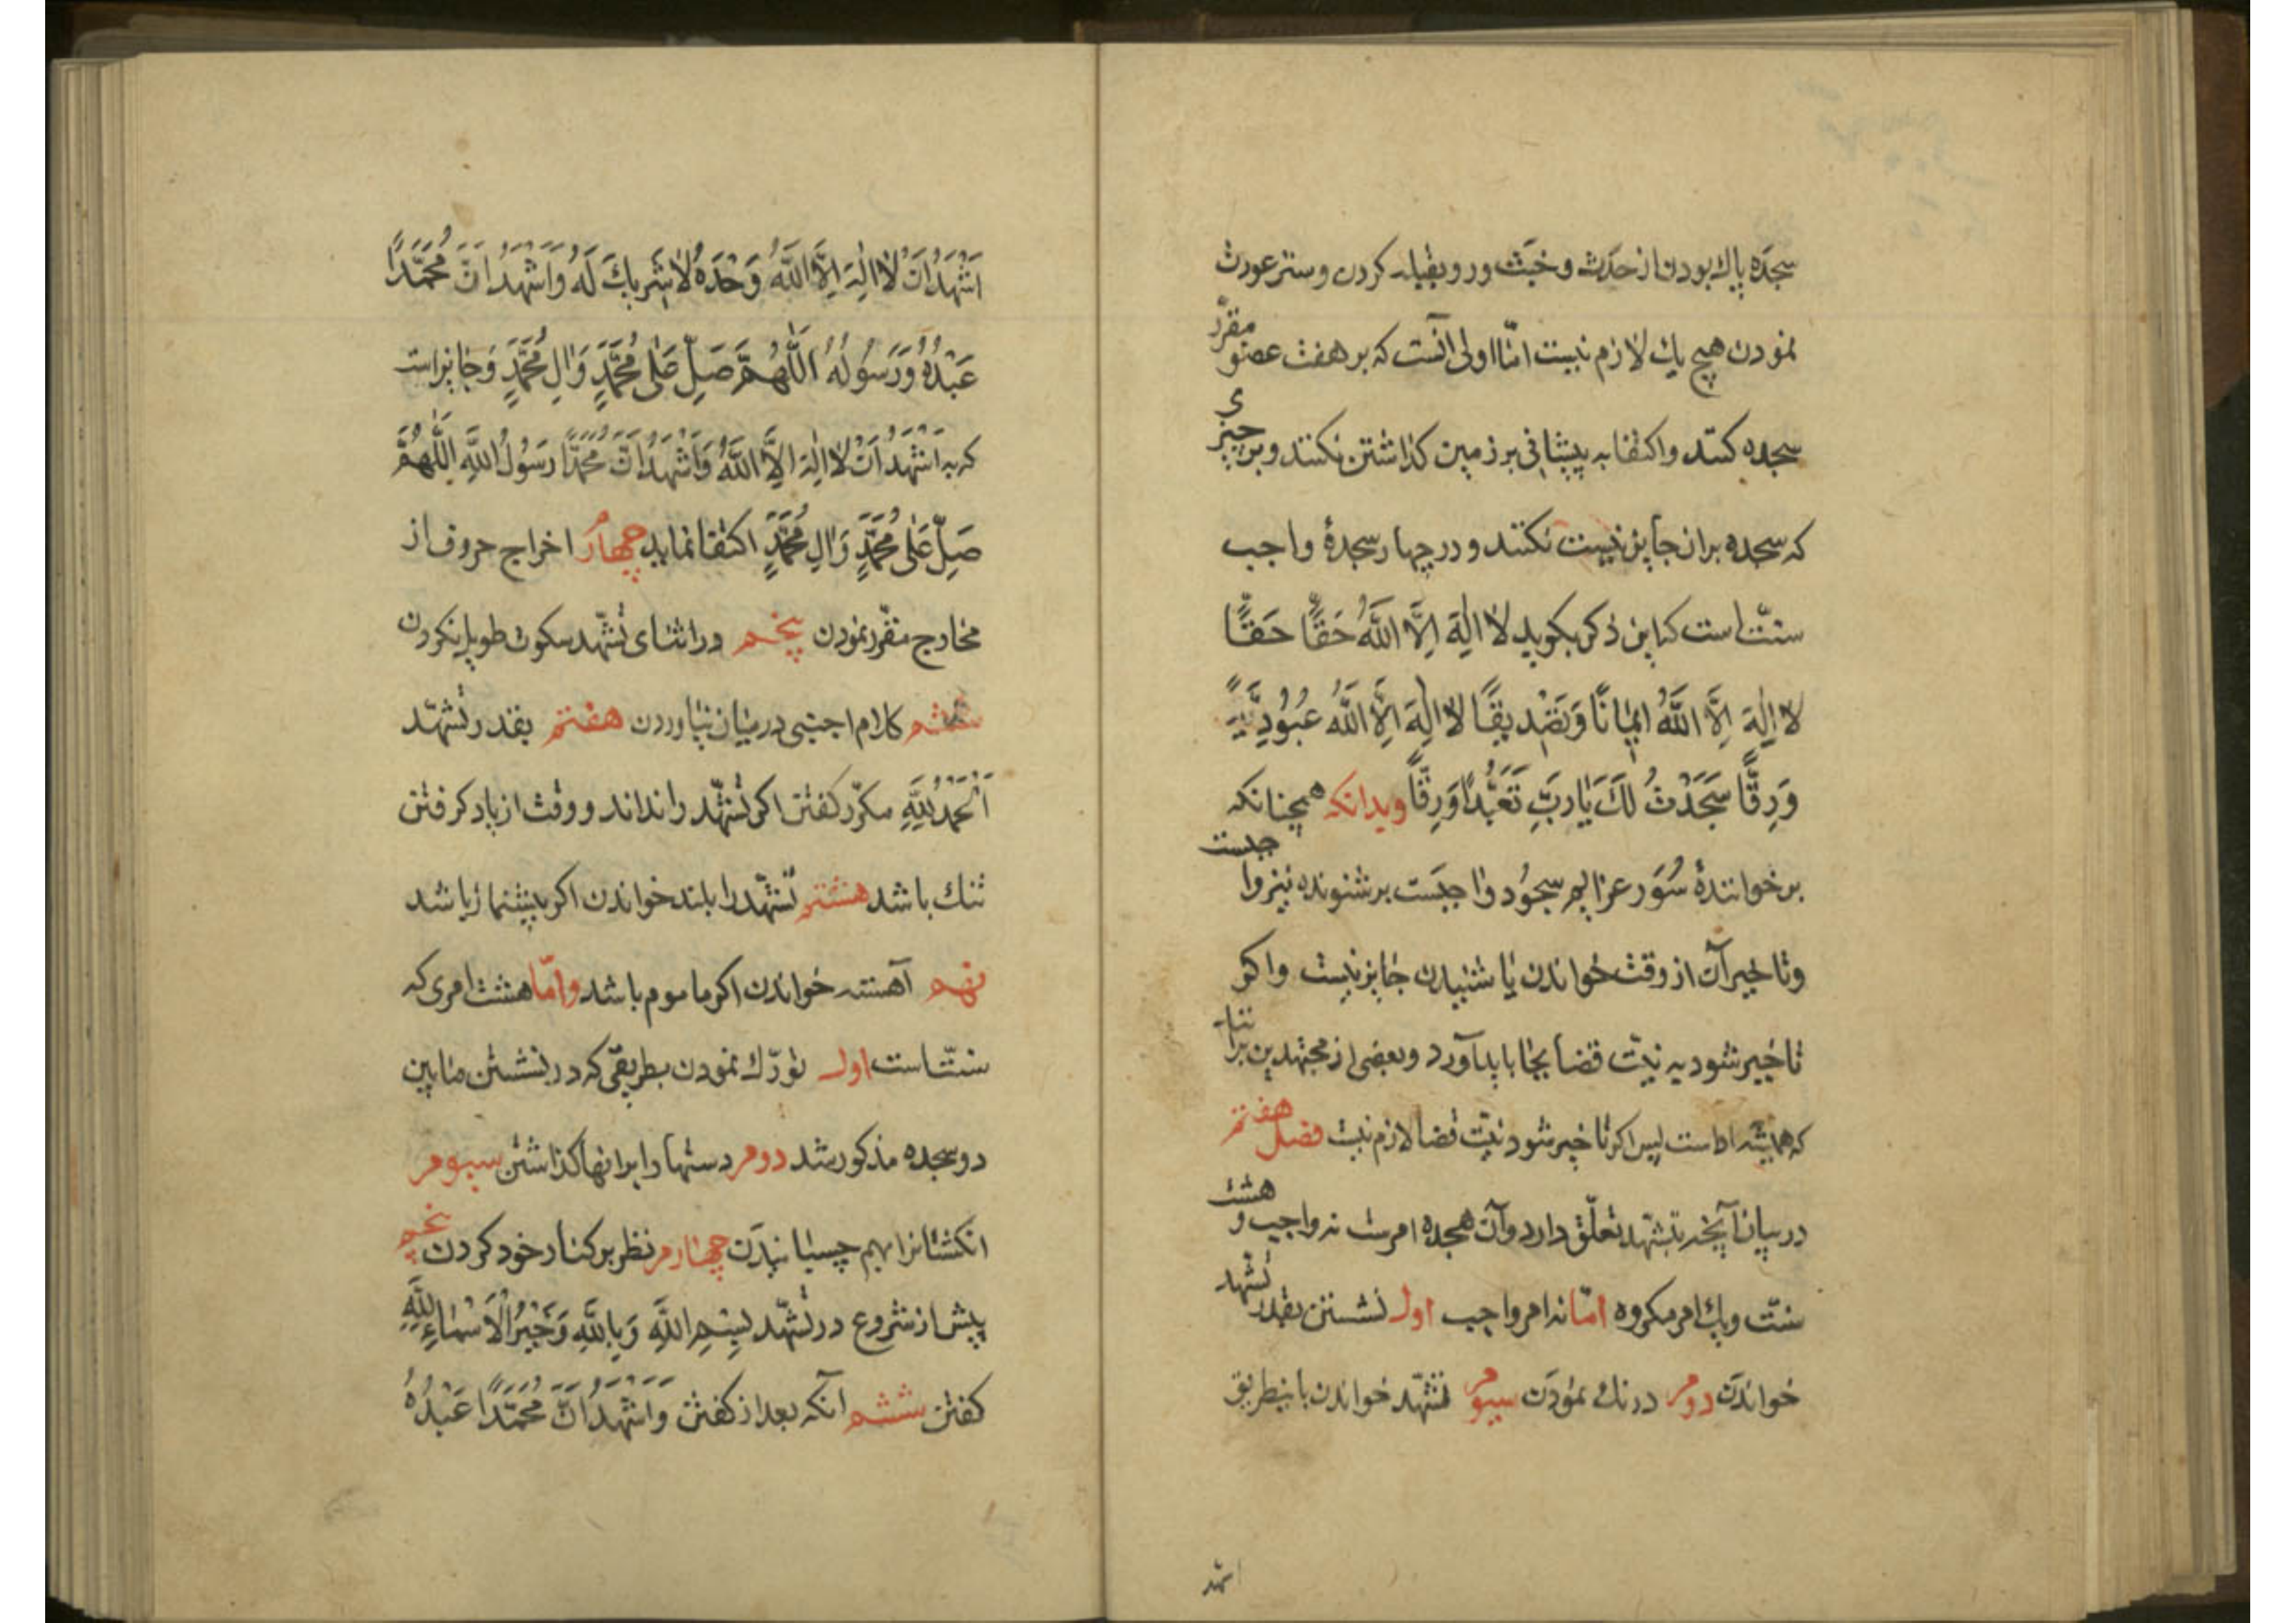 سجده پاك بودن از حدث و خبث و رو بقبله كردن و ستر عورت
نمودن هيچ يك لازم نيست امّا اولى آنست كه بر هفت عضو مقرّر
سجده كنند و اكتفا به پيشانى بر زمين كذاشتن نكنند و بر چيزى
كه سجده بران جايز نيست نكنند و در چهار سجدهٔ واجب
سنّت است كه اين ذكر بكويد لا اِلٰهَ اِلَّا اللَّهُ حَقًّا حَقًّا
لا اِلٰهَ اِلَّا اللَّهُ اِيمٰانًا وَتَصْدِيقًا لا اِلٰهَ اِلَّا اللَّهُ عُبُودِيَّةً
وَرِقًّا سَجَدْتُ لَكَ يٰا رَبِّ تَعَبُّدًا وَرِقًّا و بدانكه همچنانكه
بر خوانندهٔ سُوَر عزايم سجُود واجبَست بر شنونده نيز واجبست
و تاخير آن از وقت خواندن يا شنيدن جايز نيست و اكر
تاخير شود به نيّت قضا بجا بايد آورد و بعضى از مجتهدين برانند
كه هميشه اداست پس اكر تاخير شود نيّت قضا لازم نيست فصل هفتم
در بيان آنچه بتشهّد تعلّق دارد و آن هجده امرست نه واجب و هشت
سنّت و يك امر مكروه امّا نه امر واجب اول نشستن بقدر تشهد
خواندن دوم درنك نمودن سيوم تشهّد خواندن باينطريق
اشهد
اَشْهَدُ اَنْ لا اِلٰهَ اِلَّا اللَّهُ وَحْدَهُ لا شَرِيكَ لَهُ وَاَشْهَدُ اَنَّ مُحَمَّدًا
عَبْدُهُ وَرَسُولُهُ اَللّٰهُمَّ صَلِّ عَلٰى مُحَمَّدٍ وَاٰلِ مُحَمَّدٍ و جايز است
كه به اَشْهَدُ اَنْ لا اِلٰهَ اِلَّا اللَّهُ وَاَشْهَدُ اَنَّ مُحَمَّدًا رَسُولُ اللَّهِ اَللّٰهُمَّ
صَلِّ عَلٰى مُحَمَّدٍ وَاٰلِ مُحَمَّدٍ اكتفا نمايد چهارم اخراج حروف از
مخارج مقرّر نمودن پنجم در اثناى تشهّد سكوت طويل نكردن
ششم كلام اجنبى در ميان نياوردن هفتم بقدر تشهّد
اَلْحَمْدُ لِلَّهِ مكرّر كفتن اكر تشهّد را نداند و وقت از ياد كرفتن
تنك باشد هشتم تشهّد را بلند خواندن اكر پيشنماز باشد
نهم آهسته خواندن اكر ماموم باشد و امّا هشت امرى كه
سنّت است اول تورّك نمودن بطريقى كه در نشستن مابين
دو سجده مذكور شد دوم دستها را برانها كذاشتن سيوم
انكشتانرا بهم چسبانيدن چهارم نظر بر كنار خود كردن پنجم
پيش از شروع در تشهّد بِسْمِ اللَّهِ وَبِاللَّهِ وَخَيْرُ الْاَسْمٰاءِ لِلَّهِ
كفتن ششم آنكه بعد از كفتن وَاَشْهَدُ اَنَّ مُحَمَّدًا عَبْدُهُ